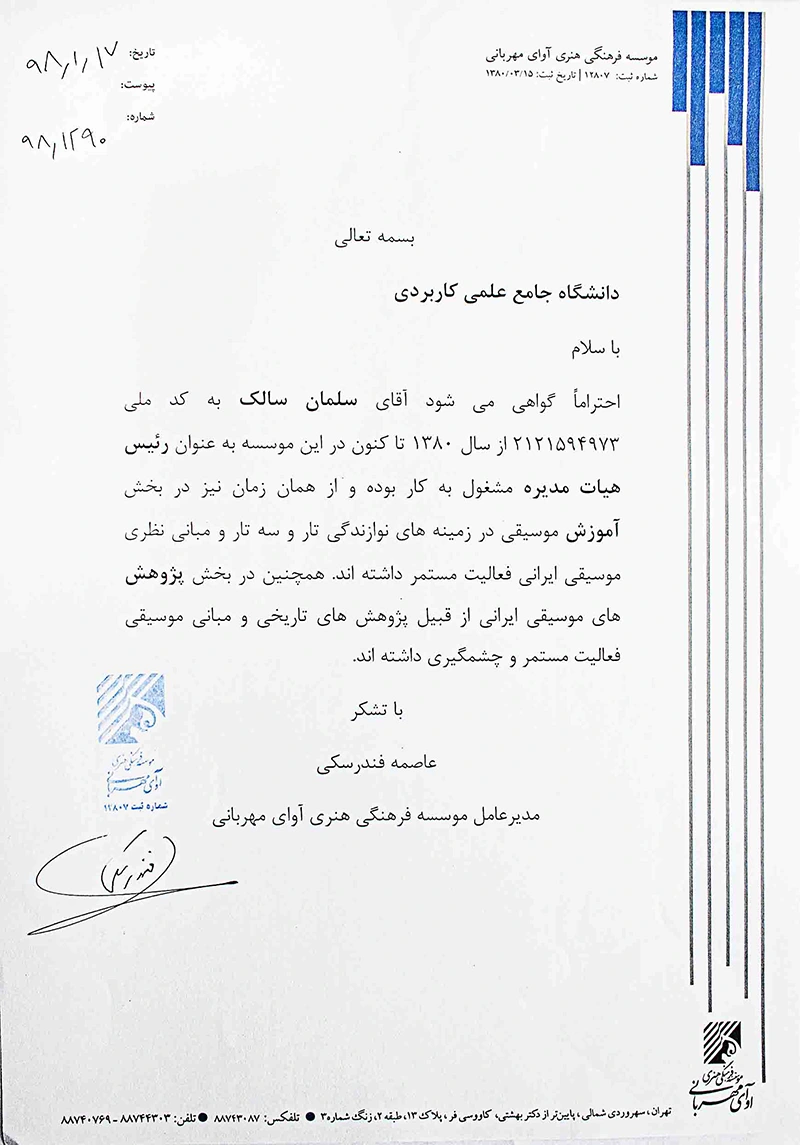 موسسه فرهنگی هنری آوای مهربانی
شماره ثبت: ۱۲۸۰۷ | تاریخ ثبت: ۱۳۸۰/۰۳/۱۵
تاریخ: ۹۸/۱/۱۷
پیوست:
شماره: ۹۸/۱۲۹۰
بسمه تعالی
دانشگاه جامع علمی کاربردی
با سلام
احتراماً گواهی می شود آقای سلمان سالک به کد ملی
۲۱۲۱۵۹۴۹۷۳ از سال ۱۳۸۰ تا کنون در این موسسه به عنوان رئیس
هیات مدیره مشغول به کار بوده و از همان زمان نیز در بخش
آموزش موسیقی در زمینه های نوازندگی تار و سه تار و مبانی نظری
موسیقی ایرانی فعالیت مستمر داشته اند. همچنین در بخش پژوهش
های موسیقی ایرانی از قبیل پژوهش های تاریخی و مبانی موسیقی
فعالیت مستمر و چشمگیری داشته اند.
با تشکر
عاصمه فندرسکی
مدیرعامل موسسه فرهنگی هنری آوای مهربانی
موسسه فرهنگی هنری
آوای مهربانی
شماره ثبت ۱۲۸۰۷
فندرسکی
موسسه فرهنگی هنری
آوای مهربانی
تهران، سهروردی شمالی، پایین‌تر از دکتر بهشتی، کاووسی فر، پلاک ۱۳، طبقه ۲، زنگ شماره ۳ ● تلفکس: ۸۸۷۴۳۰۸۷ ● تلفن: ۸۸۷۴۴۳۰۳ - ۸۸۷۴۰۷۶۹